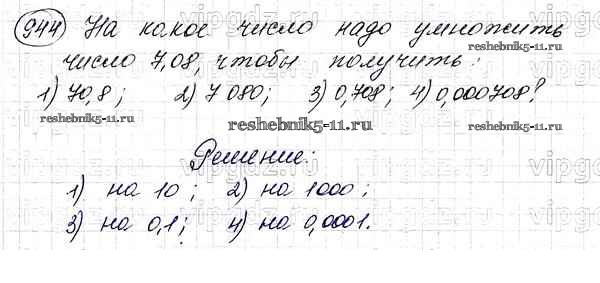 944 На какое число надо умножить
reshebnik5-11.ru
число 7,08, чтобы получить:
1) 70,8; 2) 7 080; 3) 0,708; 4) 0,000708?
reshebnik5-11.ru
Решение:
1) на 10; 2) на 1000;
3) на 0,1; 4) на 0,0001.
reshebnik5-11.ru